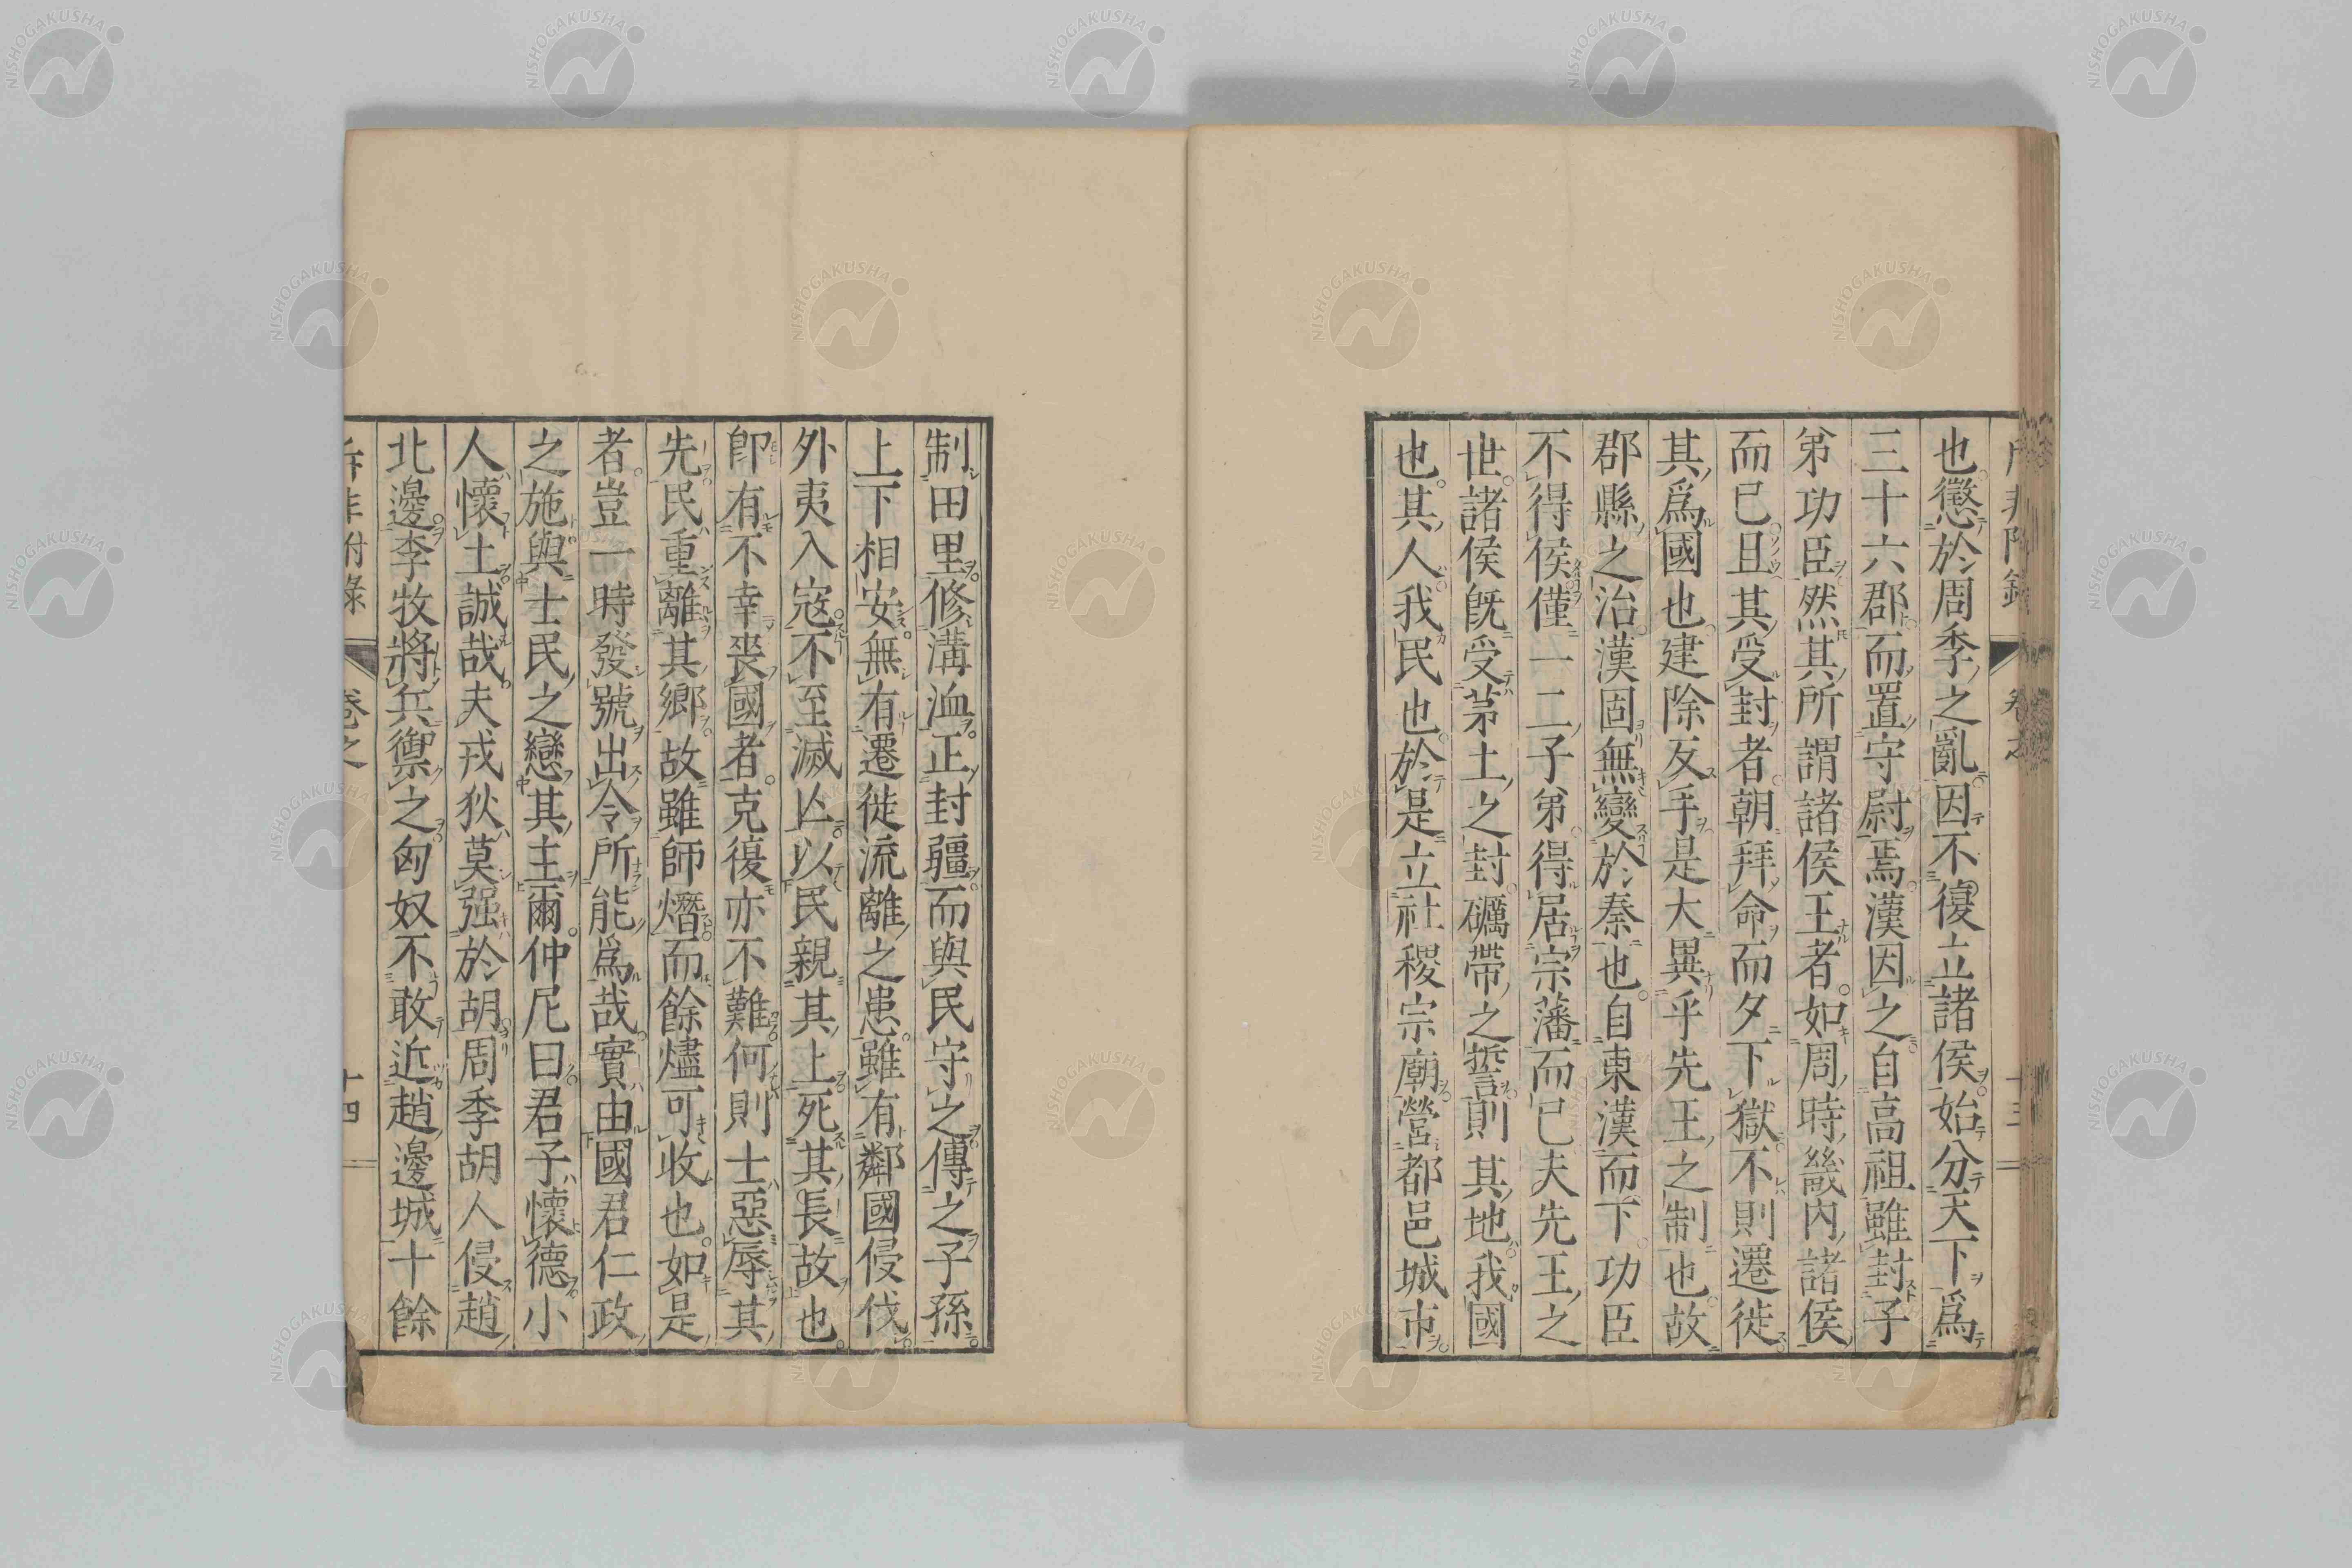 也懲於周季之亂因不復立諸侯始分天下爲
三十六郡而置守尉焉漢因之自高祖雖封子
弟功臣然其所謂諸侯王者如周時畿內諸侯
而已且其受封者朝拜命而夕下獄不則遷徙
其爲國也建除反手是大異乎先王之制也故
郡縣之治漢固無變於秦也自東漢而下功臣
不得侯僅一二子弟得居宗藩而已夫先王之
世諸侯旣受茅土之封礪帶之誓則其地我國
也其人我民也於是立社稷宗廟營都邑城市
制田里修溝洫正封疆而與民守之傳之子孫
上下相安無有遷徙流離之患雖有鄰國侵伐
外夷入寇不至滅亾以民親其上死其長故也
卽有不幸喪國者克復亦不難何則士惡辱其
先民重離其鄉故雖師熸而餘燼可收也如是
者豈一時發號出令所能爲哉實由國君仁政
之施與士民之戀其主爾仲尼曰君子懷德小
人懷土誠哉夫戎狄莫强於胡周季胡人侵趙
北邊李牧將兵禦之匈奴不敢近趙邊城十餘
斥非附錄 卷之 十四
NISHOGAKUSHA